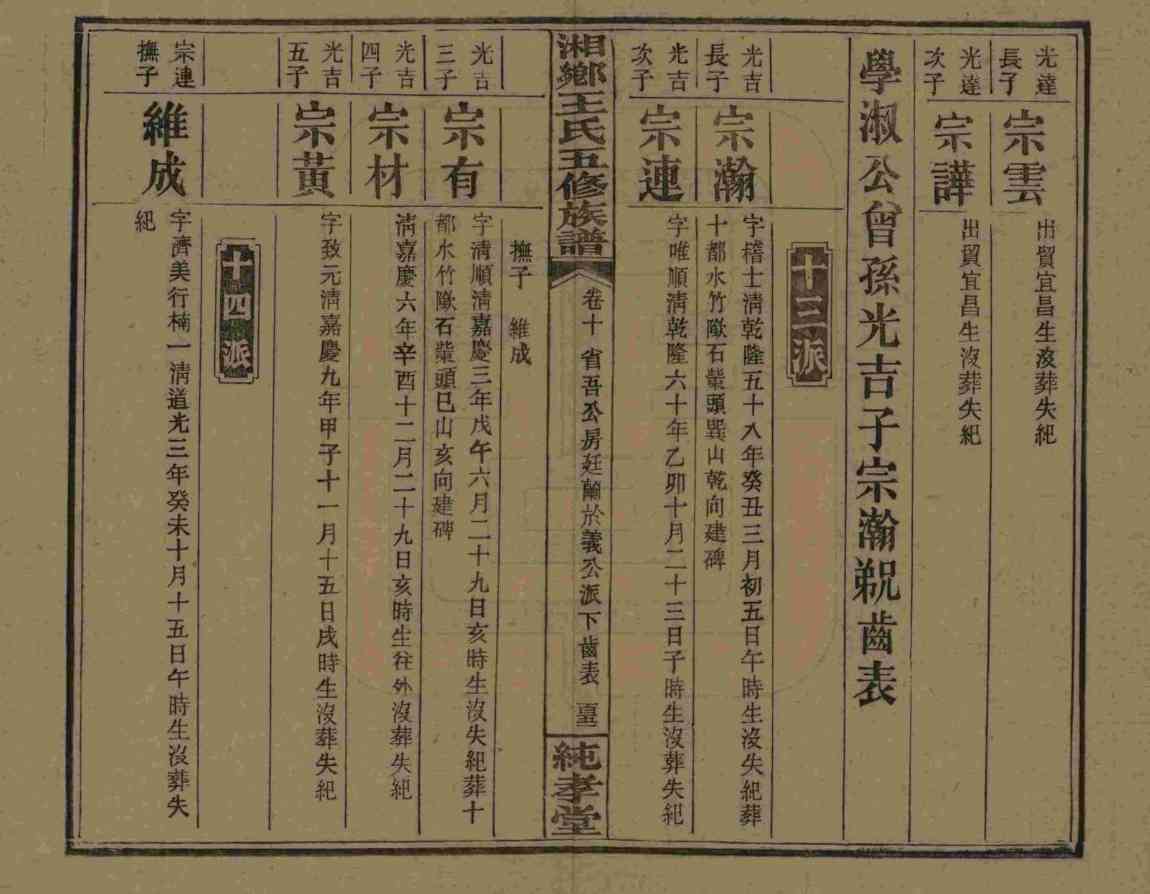 光達
長子
宗雲
出貿宜昌生沒葬失紀
光達
次子
宗譁
出貿宜昌生沒葬失紀
學淑公曾孫光吉子宗瀚
齒表
十三派
光吉
長子
宗瀚
字稽士清乾隆五十八年癸丑三月初五日午時生沒失紀葬
十都水竹
石
頭巽山乾向建碑
光吉
次子
宗連
字唯順清乾隆六十年乙卯十月二十三日子時生沒葬失紀
撫子 維成
湘鄉王氏五修族譜
卷十 省吾公房廷翰於義公派下齒表
純孝堂
光吉
三子
宗有
字清順清嘉慶三年戊午六月二十九日亥時生沒失紀葬十
都水竹
石
頭巳山亥向建碑
光吉
四子
宗材
清嘉慶六年辛酉十二月二十九日亥時生往外沒葬失紀
光吉
五子
宗黃
字致元清嘉慶九年甲子十一月十五日戌時生沒葬失紀
十四派
宗連
撫子
維成
字濟美行楠一清道光三年癸未十月十五日午時生沒葬失
紀